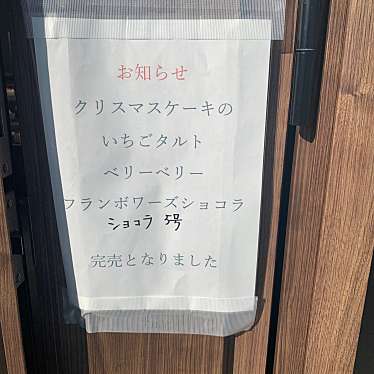 お知らせ
クリスマスケーキの
いちごタルト
ベリーベリー
フランボワーズショコラ
ショコラ 5号
完売となりました